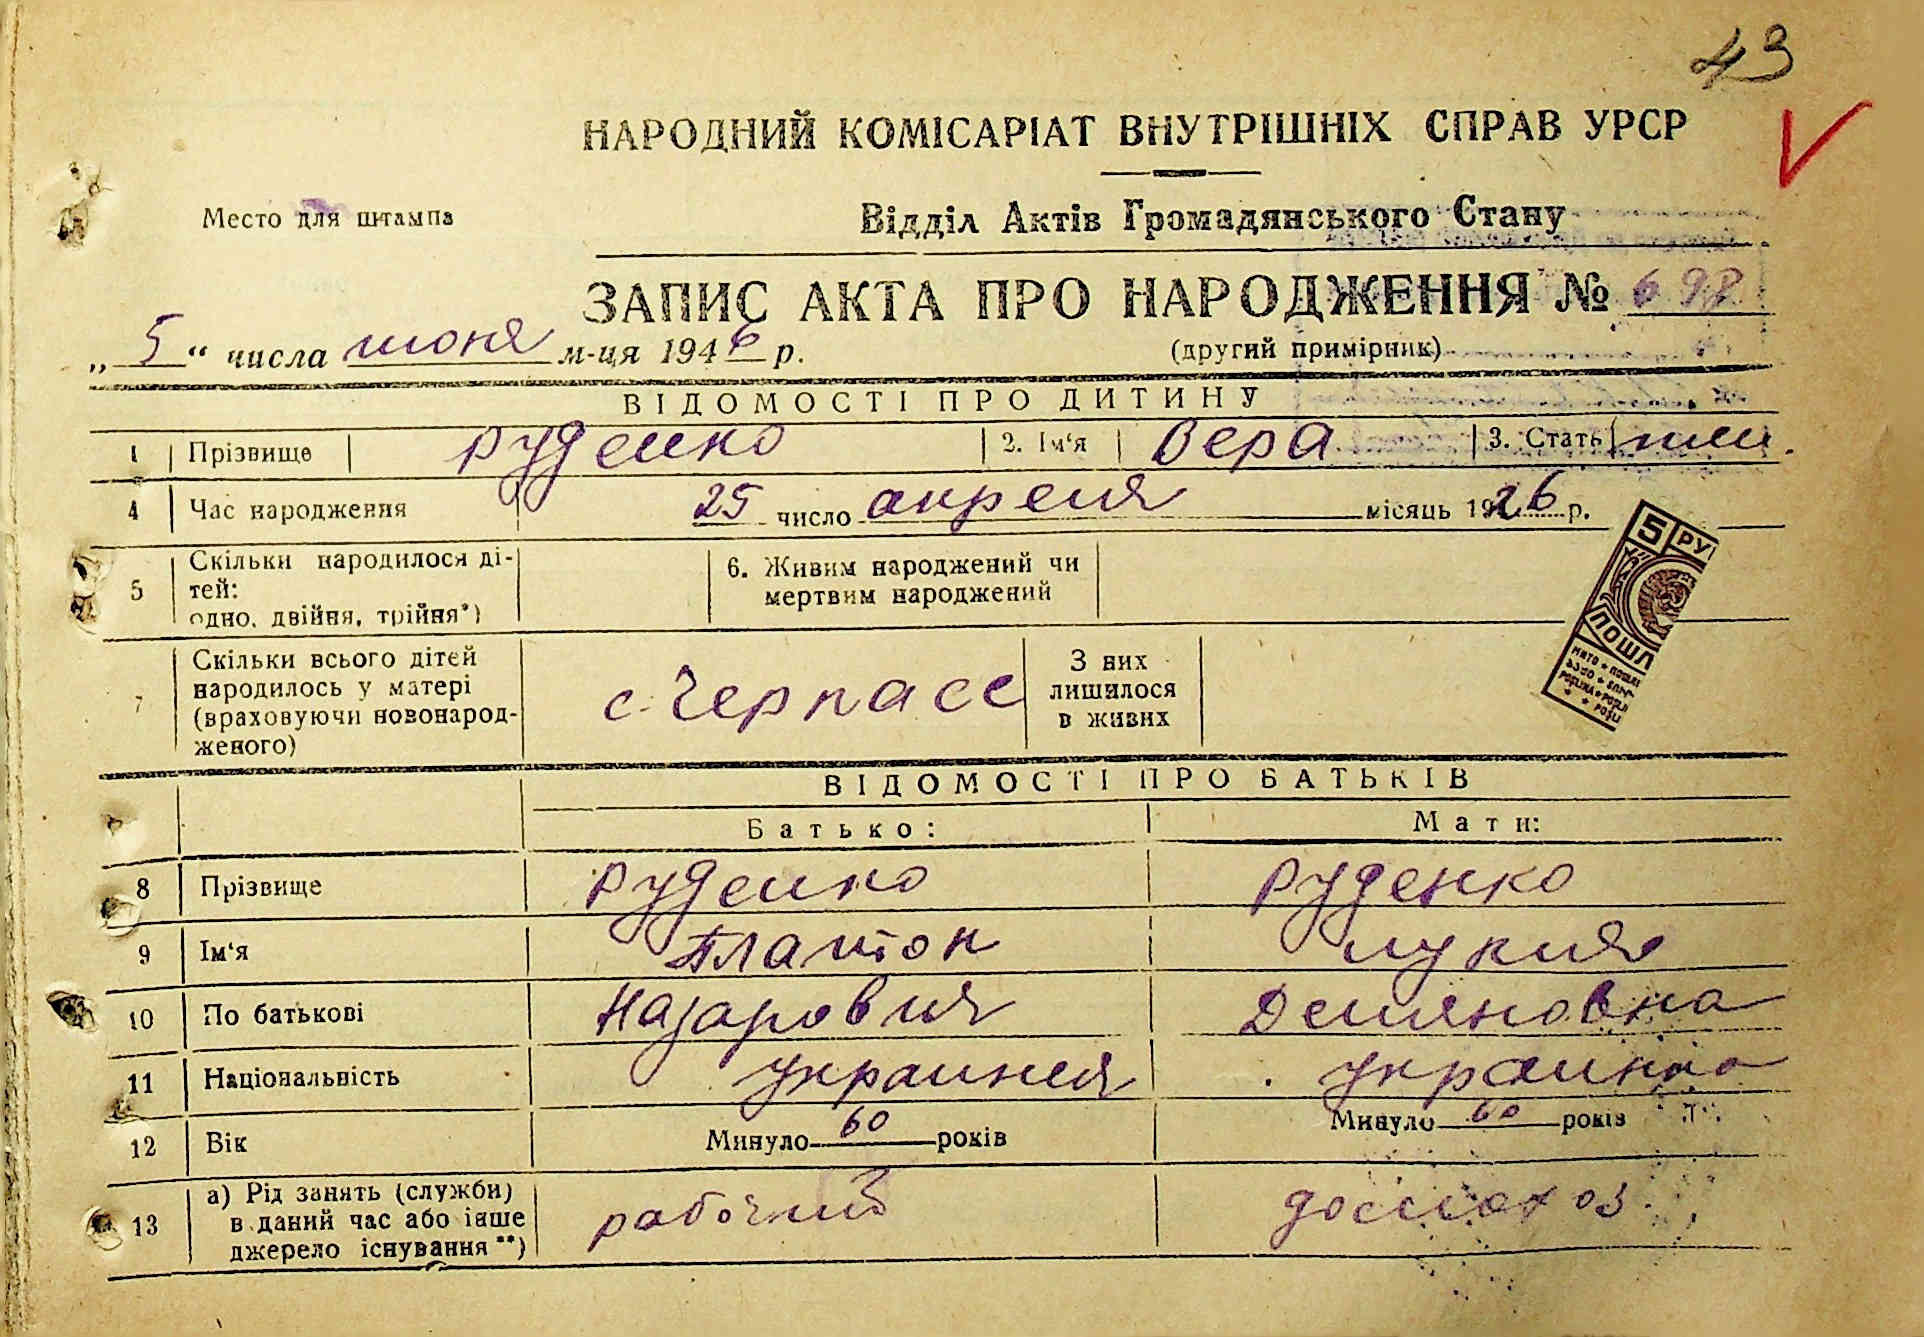 43
НАРОДНИЙ КОМІСАРІАТ ВНУТРІШНІХ СПРАВ УРСР
Место для штампа
Відділ Актів Громадянського Стану
ЗАПИС АКТА ПРО НАРОДЖЕННЯ № 698
„5“ числа июня м-ця 1946 р.
(другий примірник)
ВІДОМОСТІ ПРО ДИТИНУ
1 Прізвище Руденко 2. Ім‘я Вера 3. Стать жен.
4 Час народження 25 число апреля місяць 1926 р.
5 Скільки народилося ді-
тей:
одно, двійня, трійня*)
6. Живим народжений чи
мертвим народжений
5 РУ
ПОШЛ
7 Скільки всього дітей
народилось у матері
(враховуючи новонарод-
женого)
с. Черпасс
З них
лишилося
в живих
ВІДОМОСТІ ПРО БАТЬКІВ
Батько: Мати:
8 Прізвище Руденко Руденко
9 Ім‘я Платон Лукия
10 По батькові Назарович Демяновна
11 Національність украинец украинка
12 Вік Минуло 60 років Минуло 60 років
13 а) Рід занять (служби)
в даний час або інше
джерело існування**)
рабочий домохоз.